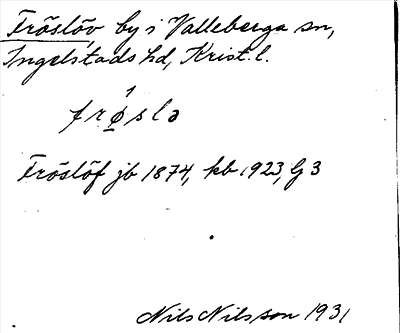 Fröslöv by i Valleberga sn,
Ingelstads hd, Krist. l.
frø̀slə
Fröslöf jb 1874, kb 1923, G 3
Nils Nilsson 1931